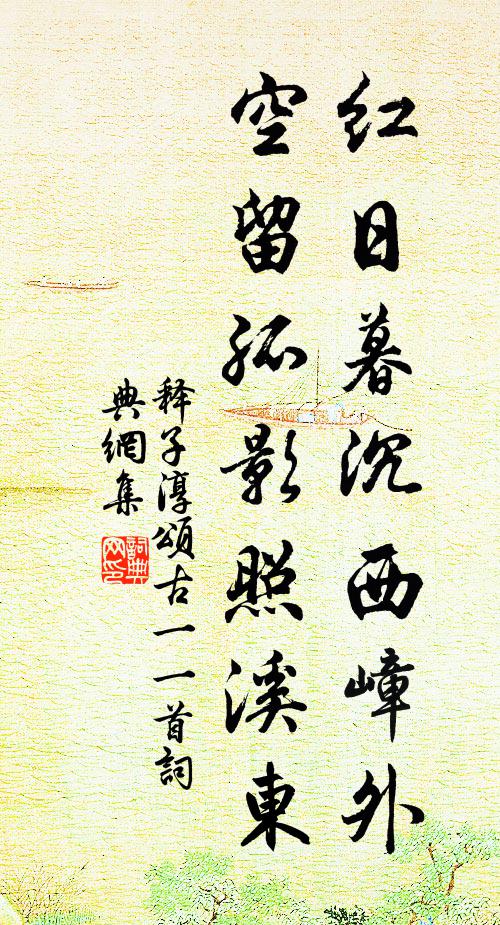 红日暮沉西嶂外
空留孤影照溪東
释子淳頌古一一首詞
典網集
詞典网印